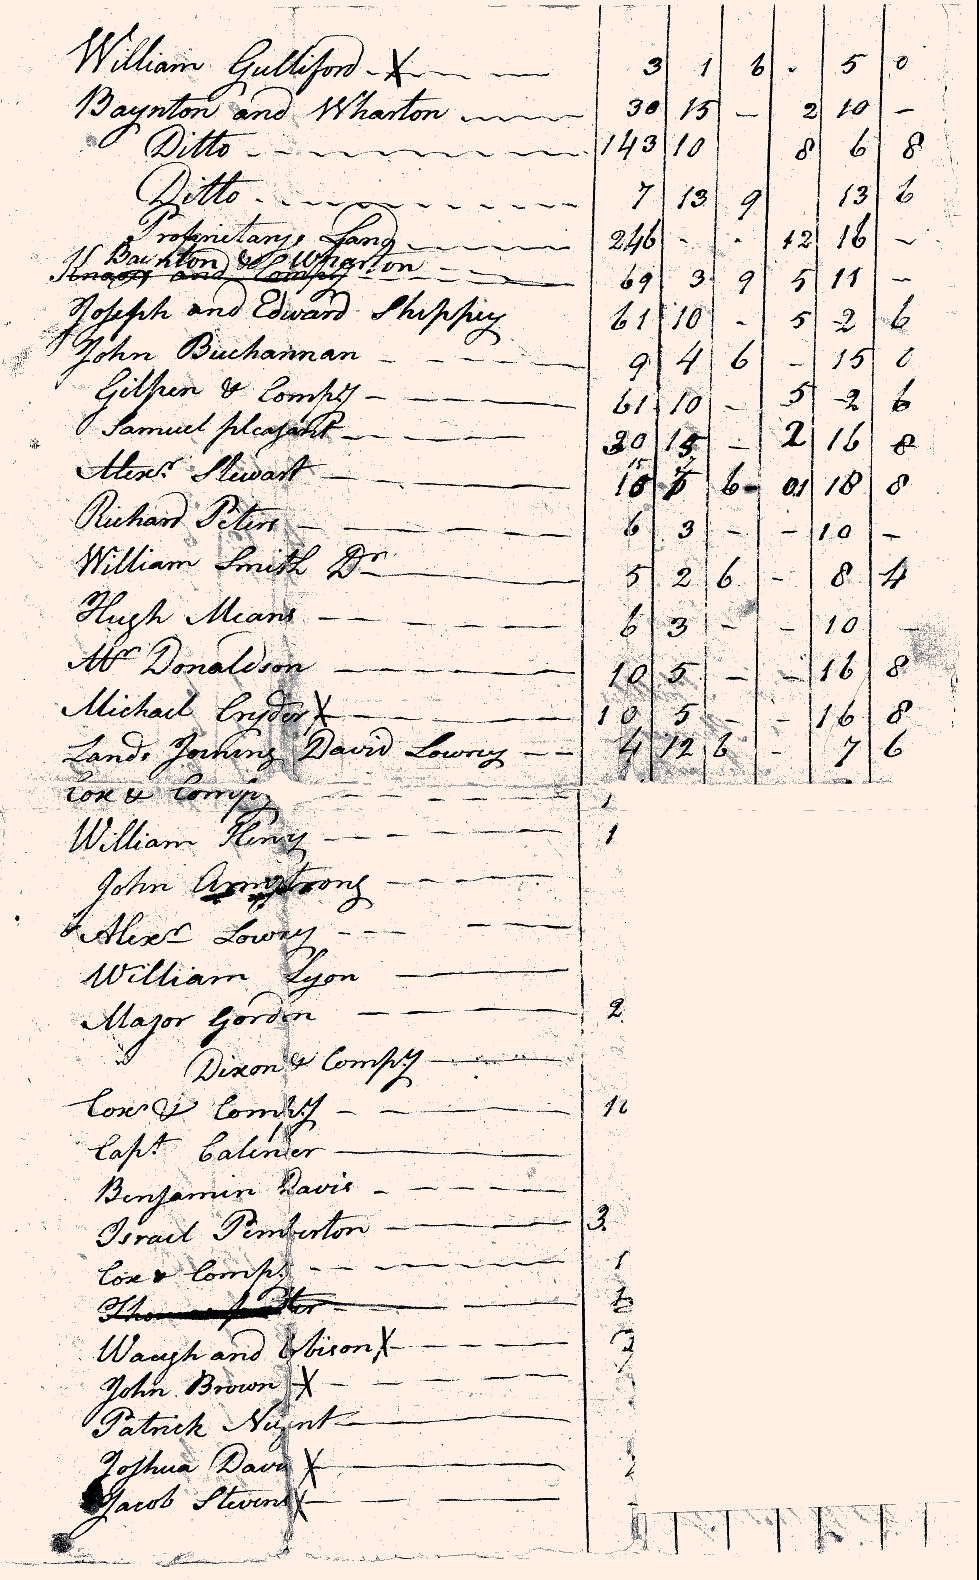 William Gulliford X 3 1 6 . 5 0
Baynton and Wharton 30 15 – 2 10 –
Ditto 143 10 8 6 8
Ditto 7 13 9 13 6
Proprietarys Land 246 - - 12 16 –
Baynton & Wharton
and Compy 69 3 9 5 11 –
Joseph and Edward Shippey 61 10 - 5 2 6
John Buchannan 9 4 6 - 15 0
Gilpen & Compy 61 10 - 5 2 6
Samuel pleasant 15 – 2 16 8
Alexr Stewart 6 01 18 8
Richard Peters 6 3 – – 10 –
William Smith Dr 5 2 6 - 8 4
Hugh Means 6 3 – – 10 –
Mr Donaldson 10 5 – – 16 8
Michael Cryder X 10 5 – – 16 8
Lands Joining David Lowrey 4 12 6 - 7 6
Cox & Compy 1
William Henry 1
John Armstrong
Alexr Lowrey
William Lyon
Major Gordon 2
Dixon & Compy
Cox & Compy
Capt
Benjamin Davis
Israel Pemberton 3
Cox & Compy 1
Waugh and X
John Brown X
Patrick
Joshua Davis X
Jacob Stevens X